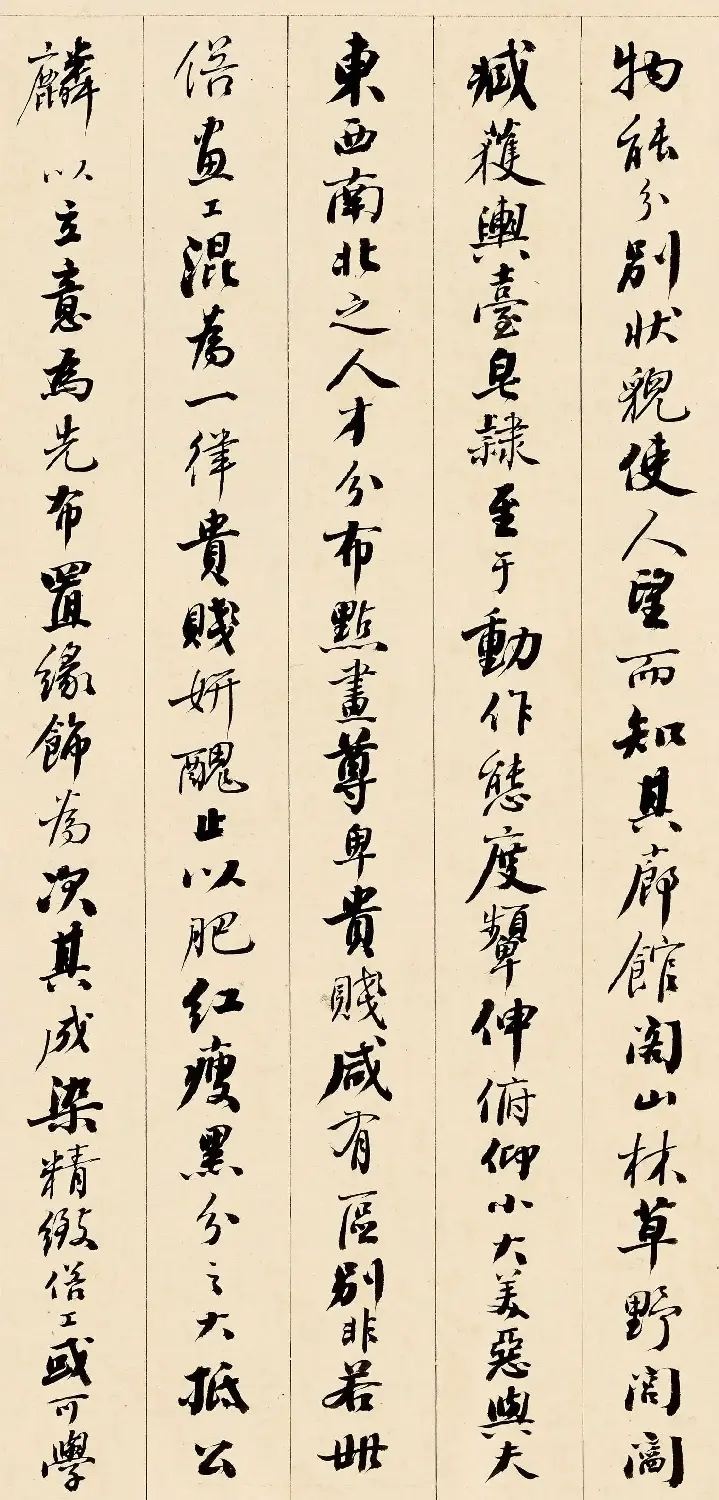 物能分别狀貌使人望而知其廊館閣山林草野閭閻
臧獲輿臺皂隸至于動作態度顰伸俯仰小大美惡與夫
東西南北之人才分布點畫尊卑貴賤咸有區别非若世
俗畫工混為一律貴賤妍醜止以肥紅瘦黑分之大抵公
麟以立意為先布置緣飾為次其成染精緻俗工或可學